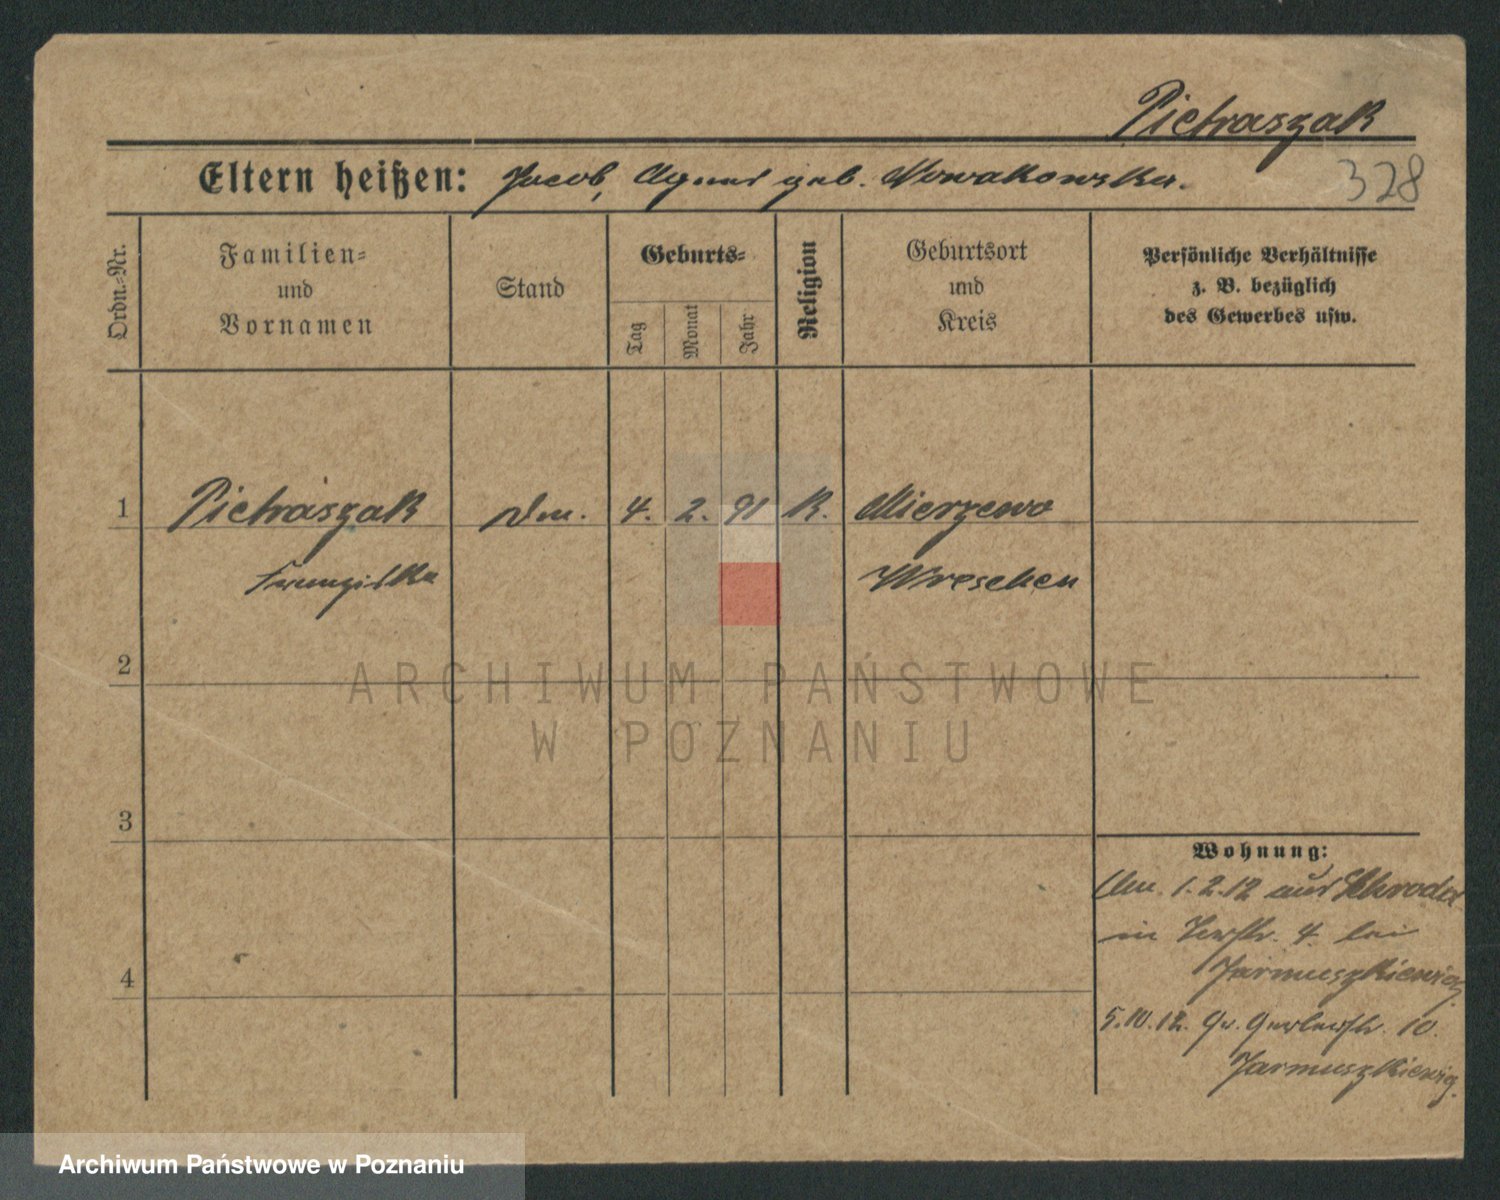 Pietraszak
Eltern heißen: Jacob, Agnes geb. Nowakowska.
328
Ordn.-Nr.
Familien-
und
Vornamen
Stand
Geburts-
Tag
Monat
Jahr
Religion
Geburtsort
und
Kreis
Persönliche Verhältnisse
z. B. bezüglich
des Gewerbes usw.
1 Pietraszak 4. 2. 91 K. Mierzewo
Franziska Wreschen
2
3
4
Wohnung:
Am 1.2.12 aus Schroda
in 4. bei
Jarmuszkiewicz
5.10.12. Gr. Gerberstr. 10.
Jarmuszkiewicz.
ARCHIWUM PAŃSTWOWE
W POZNANIU
Archiwum Państwowe w Poznaniu